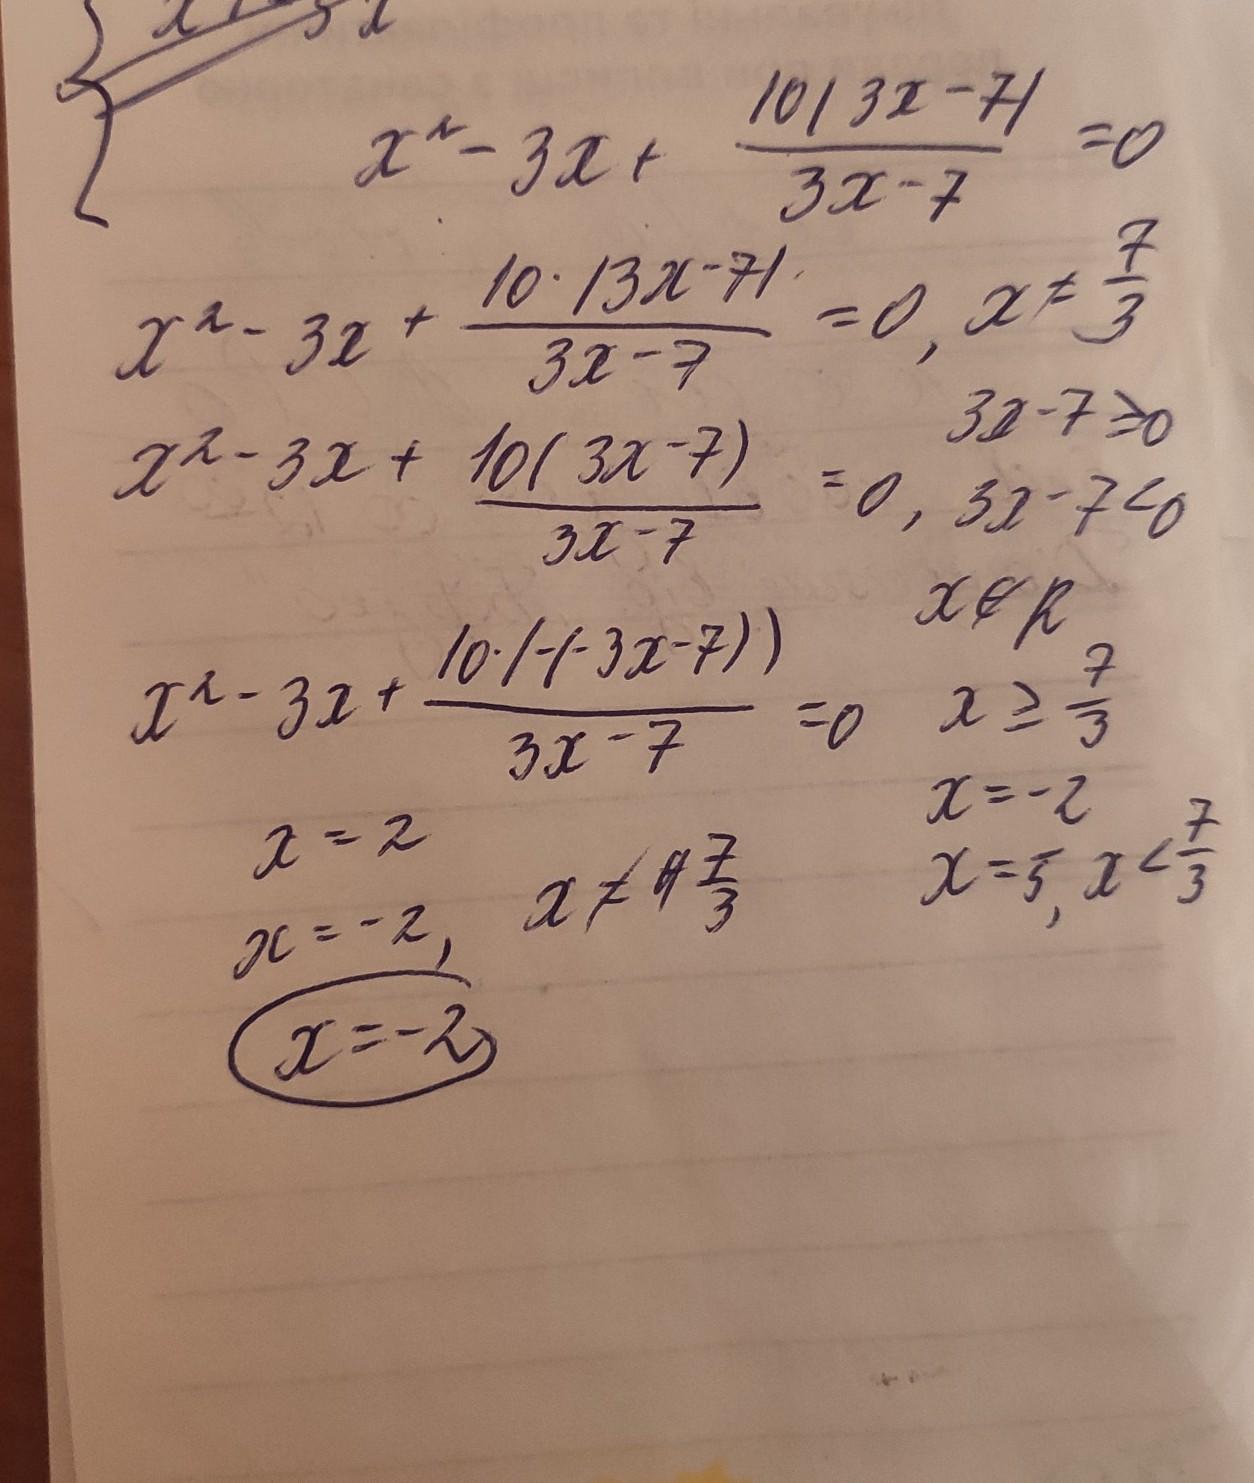 x² - 3x + 10|3x-7| / 3x-7 = 0
x² - 3x + 10·|3x-7| / 3x-7 = 0, x ≠ 7/3
3x-7 ≥ 0
x² - 3x + 10(3x-7) / 3x-7 = 0, 3x-7 < 0
x ∉ R
x² - 3x + 10·(-(-3x-7)) / 3x-7 = 0
x ≥ 7/3
x = -2
x = 2
x = 5, x < 7/3
x = -2, x ≠ 7/3
x = -2